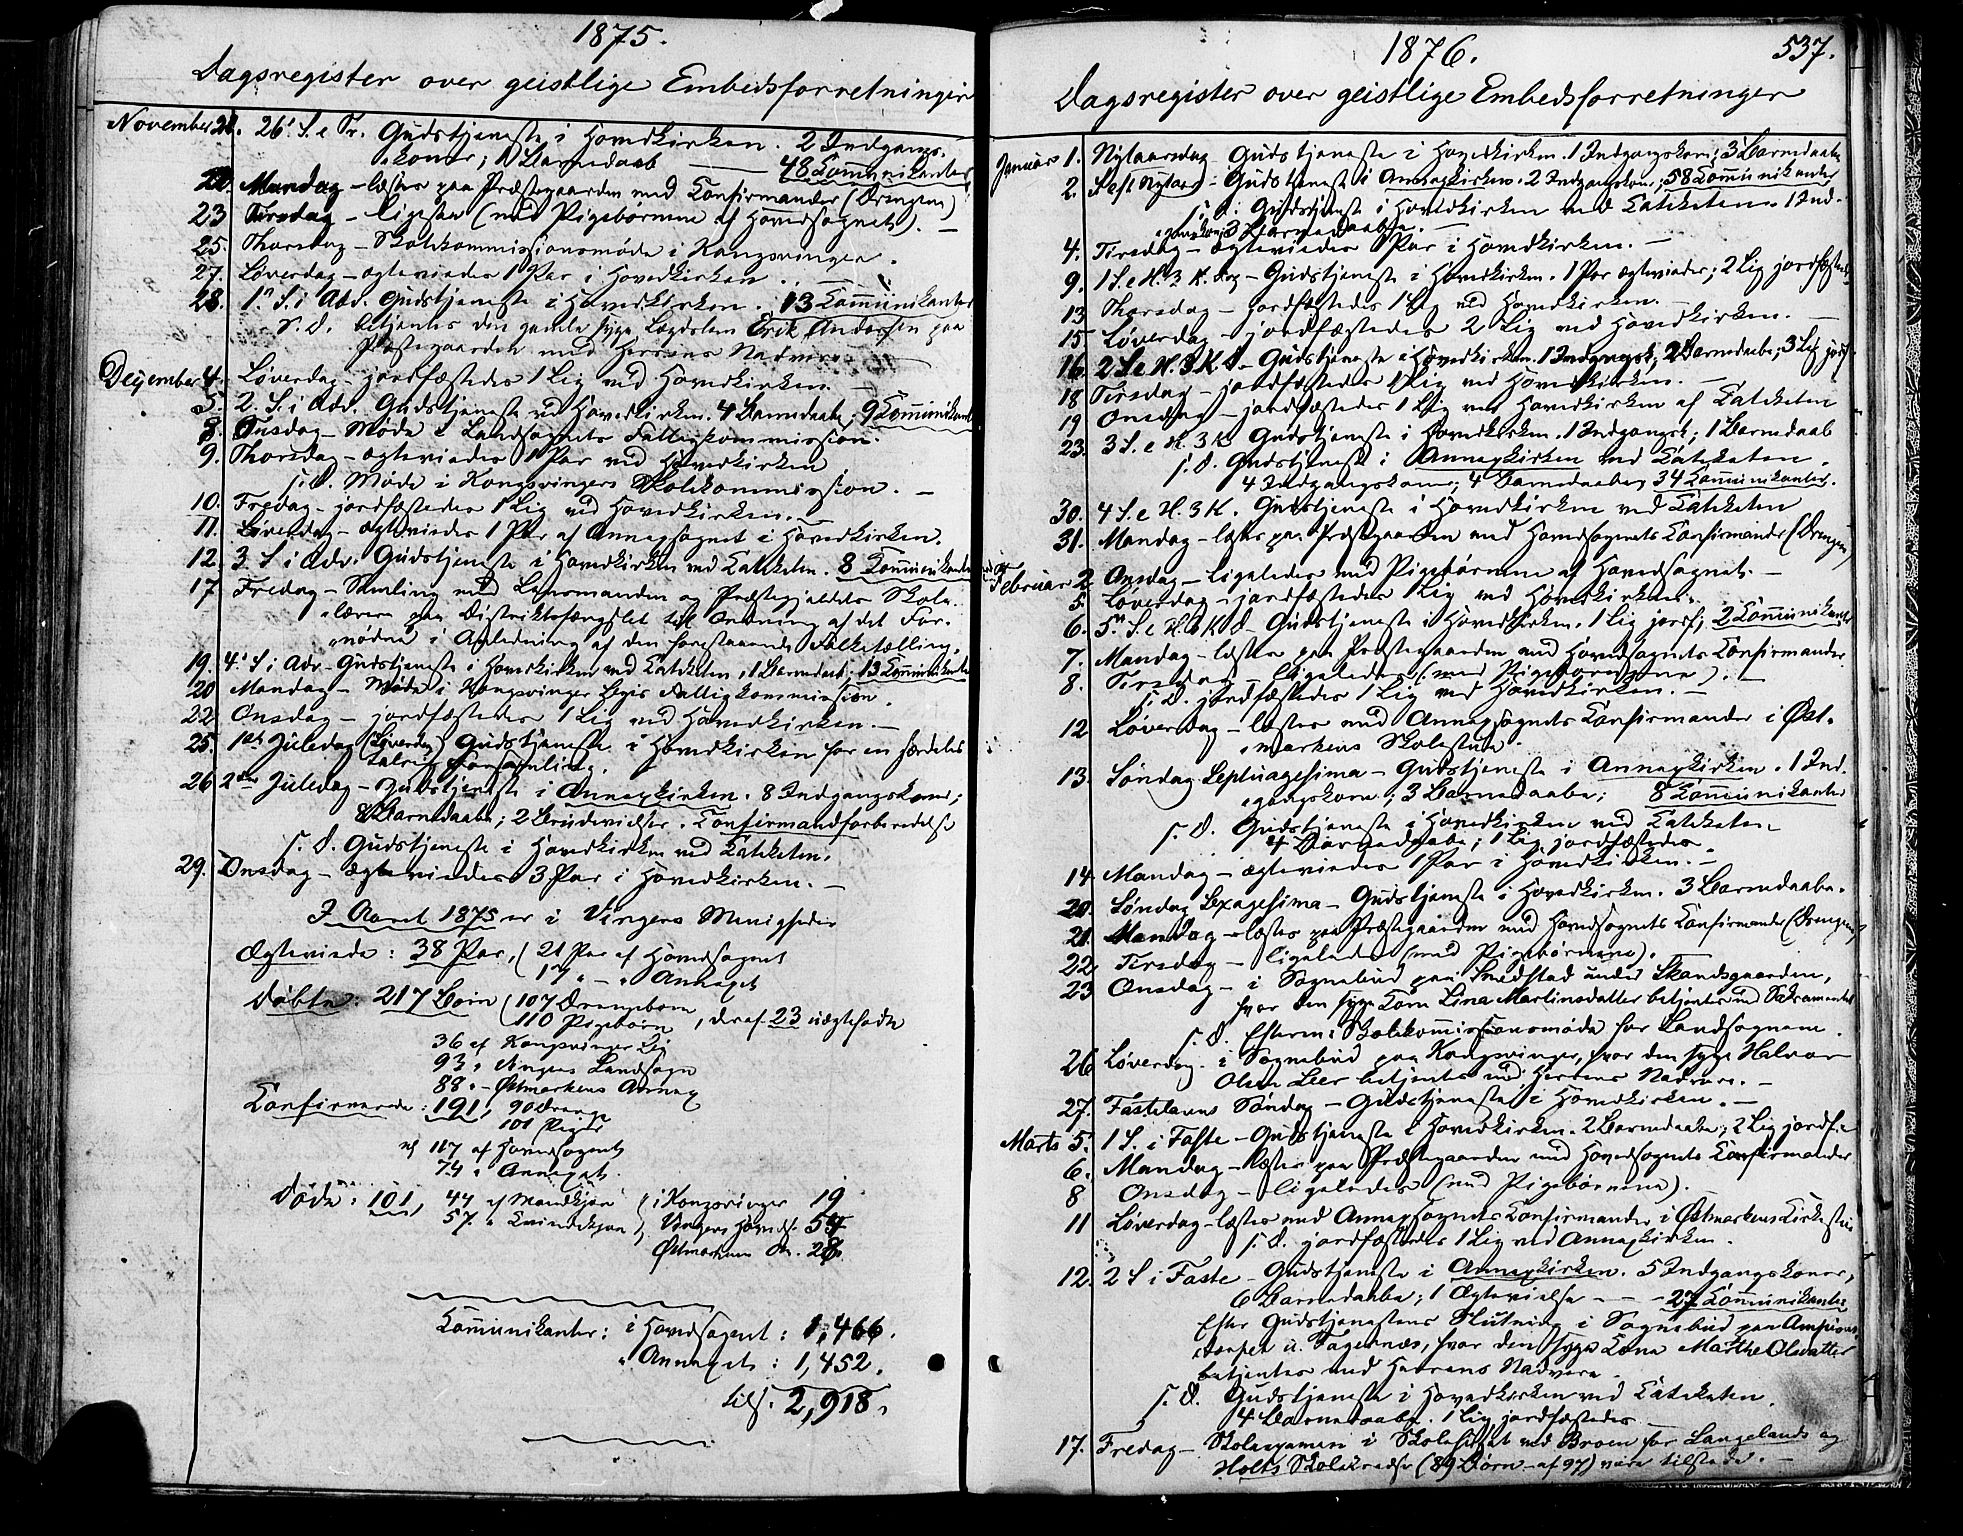 1875.
Dagsregister over geistlige Embedsforretninger
November 21. 26. S. e Tr. Gudstjeneste i Hovedkirken. 2 Indgangs-
koner; 1 Barnedaab — 48 Communikanter
22. Mandag – læstes paa Præstegaarden med Confirmander (Drengene)
23 Tirsdag – ligesaa (med Pigebørnene af Hovedsognet). –
25. Thorsdag – Skolekommissionsmøde i Kongsvinger.
27. Løverdag – ægteviedes 1 Par i Hovedkirken.
28. 1n S. i Adv. Gudstjeneste i Hovedkirken. 13 Communikanter
S. D. betjentes den gamle syge Lægdslem Erik Andersen paa
Præstegaarden med Herrens Nadvere
December 4. Løverdag – jordfæstedes 1 Lig ved Hovedkirken. –
5. 2. S. i Adv. Gudstjeneste ved Hovedkirken. 4 Barnedaabe; 9 Communikant
8. Onsdag – Møde i Landsognets Fattigkommission.
9. Thorsdag – ægteviedes 1 Par ved Hovedkirken
S. D. Møde i Kongsvingers Skolekommission. –
10. Fredag – jordfæstedes 1 Lig ved Hovedkirken. –
11. Løverdag – ægteviedes 1 Par af Annexsognet i Hovedkirken.
12. 3 S. i Adv. Gudstjeneste i Hovedkirken ved Cateketen. 8 Communikanter
17 Fredag – Samling med Lensmanden og Præstegjældets Skole-
lærere paa Distriktsfængslet til Ordning af det For-
nødne i Anledning af den forestaaende Folketælling.
19. 4. S. i Adv – Gudstjeneste i Hovedkirken ved Cateketen, 1 Barnedaab; 13 Communikanter
20 Mandag – Møde i Kongsvinger Byes Fattigkommission.
22 Onsdag – jordfæstedes 1 Lig ved Hovedkirken. –
25. 1ste Juledag (Løverdag) Gudstjeneste i Hovedkirken for en særdeles
talrig Forsamling.
26 2den Juledag – Gudstjeneste i Annexkirken. 8 Indgangskoner;
8 Barnedaabe; 2 Brudevielser. Confirmandforberedelse
S. D. Gudstjeneste i Hovedkirken ved Cateketen.
29. Onsdag – Ægteviedes 3 Par i Hovedkirken. –
I Aaret 1875 er i Vingers Menigheder
Ægteviede: 38 Par, (21 Par af Hovedsognet
17 " – " Annexet
Døbte: 217 Børn (107 Drengebørn
110 Pigebørn, deraf 23 uægtefødte
36 af Kongsvinger By
93 " Vingers Landsogn
88 " – Østmarkens Annex
Confirmerede: 191, 90 Drenge
101 Piger
117 af Hovedsognet
74 " Annexet
Døde: 101, 44 af Mandkjøn (i Kongsvinger 19
57. " Qvindekjøn, Vingers Hoveds. 54
Østmarkens 28.
Communikanter: i Hovedsognet: 1,466.
" Annexet: 1,452.
tils. 2,918.
1876. 537.
Dagsregister over geistlige Embedsforretninger
Januar 1. Nytaarsdag – Gudstjeneste i Hovedkirken. 1 Indgangskone; 3 Barnedaabe
2. S. eft Nytaar – Gudstjeneste i Annexkirken. 2 Indgangskoner; 58 Communikanter
S. D. Gudstjeneste i Hovedkirken ved Cateketen. 1 Ind-
gangskone; 3 Barnedaabe. –
4. Tirsdag – ægteviedes 1 Par i Hovedkirken. –
9. 1 S. e H. 3 K. Dag – Gudstjeneste i Hovedkirken. 1 Par ægteviedes; 2 Lig jordfæstedes
13 Thorsdag – jordfæstedes 1 Lig ved Hovedkirken. –
15 Løverdag – jordfæstedes 2 Lig ved Hovedkirken. –
16. 2 S. e H. 3 K. D. – Gudstjeneste i Hovedkirken. 1 Indgangsk; 2 Barnedaabe; 3 Lig jordf.
18 Tirsdag – jordfæstedes 1 Lig ved Hovedkirken. –
19 Onsdag – jordfæstedes 1 Lig ved Hovedkirken af Cateketen
23. 3 S. e H. 3 K. Gudstjeneste i Hovedkirken. 1 Indgangsk; 1 Barnedaab
S. D. Gudstjeneste i Annexkirken ved Cateketen.
4 Indgangskoner; 4 Barnedaabe; 34 Communikanter.
30. 4 S. e H. 3 K. Gudstjeneste i Hovedkirken ved Cateketen
31. Mandag – læstes paa Præstegaarden med Hovedsognets Confirmander (Drengene)
Februar 2 Onsdag – ligeledes med Pigebørnene af Hovedsognet. –
5. Løverdag – jordfæstedes 1 Lig ved Hovedkirken.
6. 5n S. e H. 3 K D – Gudstjeneste i Hovedkirken. 1 Lig jordf; 2 Communikanter
7. Mandag – læstes paa Præstegaarden med Hovedsognets Confirmander
8. Tirsdag – ligeledes (med Pigebørnene). –
S. D. jordfæstedes 1 Lig ved Hovedkirken. –
12 Løverdag – læstes med Annexsognets Confirmander i Øst-
markens Skolestue.
13. Søndag Septuagesima – Gudstjeneste i Annexkirken. 1 Ind-
gangskone; 3 Barnedaabe; 8 Communikanter
S. D. Gudstjeneste i Hovedkirken ved Cateketen
4 Barnedaabe; 1 Lig jordfæstedes.
14. Mandag – ægteviedes 1 Par i Hovedkirken. –
20. Søndag Sexagesima – Gudstjeneste i Hovedkirken. 3 Barnedaabe.
21. Mandag – læstes paa Præstegaarden med Hovedsognets Confirmander (Drengene)
22 Tirsdag – ligeledes (med Pigebørnene).
23 Onsdag – i Sognebud paa Smedstad under Skandsgaarden,
hvor den syge Kone Lina Martinsdatter betjentes med Sakramentet
S. D. Efterm: Skolekommissionsmøde for Landsognene.
26 Løverdag – i Sognebud paa Kongsvinger, hvor den syge Halvor
Olsen Lier betjentes med Herrens Nadvere. –
27. Fastelavns Søndag – Gudstjeneste i Hovedkirken. –
Marts 5. 1 S. i Faste – Gudstjeneste i Hovedkirken. 2 Barnedaabe; 2 Lig jordf.
6. Mandag – læstes paa Præstegaarden med Hovedsognets Confirmander
8 Onsdag – ligeledes (med Pigebørnene). –
11 Løverdag – læstes med Annexsognets Confirmander i Østmarkens Kirkestue
S. D. jordfæstedes 1 Lig ved Annexkirken.
12. 2 S i Faste – Gudstjeneste i Annexkirken. 5 Indgangskoner,
6 Barnedaabe; 1 Ægtevielse – – – 27 Communikanter
Efter Gudstjenestens Slutning i Sognebud paa
u. Fagernæs, hvor den syge Kone Marthe Olsdatter
betjentes med Herrens Nadvere.
S. D. Gudstjeneste i Hovedkirken ved Cateketen.
4 Barnedaabe. 1 Lig jordfæstedes
17. Fredag – Skoleexamen i Skolehuset ved Broen for Langelands og
Holts Skolekredse (89 Børn – af 97) være tilstede. –